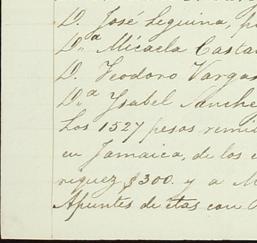 D. José Leguina, p
D.ª Micaela Casta
D. Teodoro Vargas
D.ª Ysabel Sanche
Los 1527 pesos remi
en Jamaica, de los
riquez $300. y a M
Apuntes de etas con